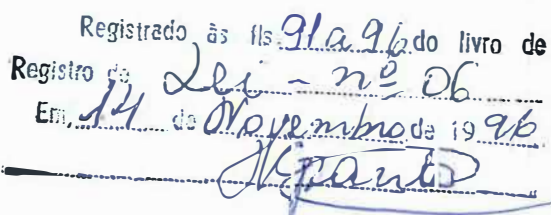 Registrado às fls. 91 a 96 do livro de
Registro de Lei - nº 06
Em, 14 de Novembro de 1996